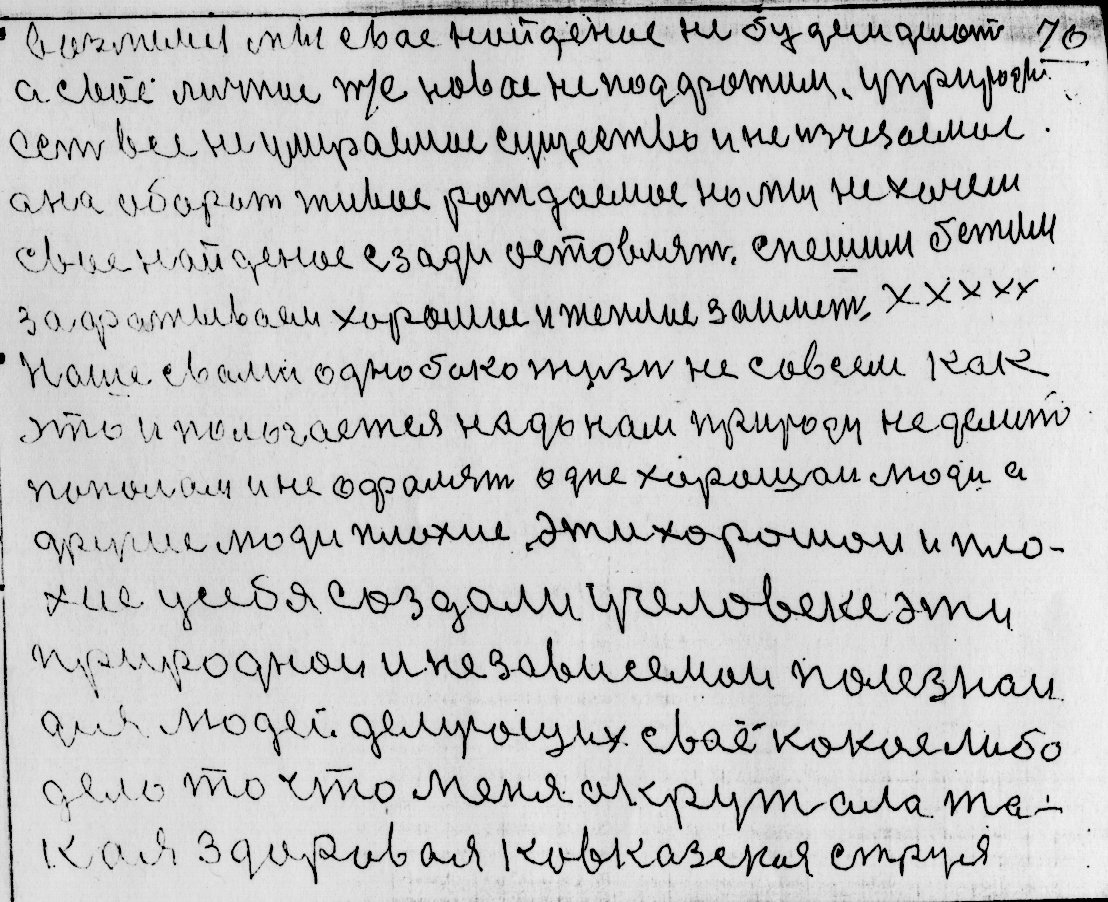 мы свае найденое не будем делать 70
а своё личное же новае не поддражим, уприроды
есть все не умираемое существо и не изчезаемое.
ана оборат живое рождаемое но мы не хочем
свое найденое сзади оставлят. спешим бежим
задражываем хорошие и теплие заимет. ххххх
Наше свами однобоко жизн не совсем как
это и получается надо нам природу не делит
пополам и не одралят одне хорошаи люди а
другие люди плохие, эти хорошои и пло-
хие усебя создали учеловеке эти
природнои и независемои полезнаи
для людей. делающих сваё какоелибо
дело то что меня акружала та-
кая здоровая кавказская струя